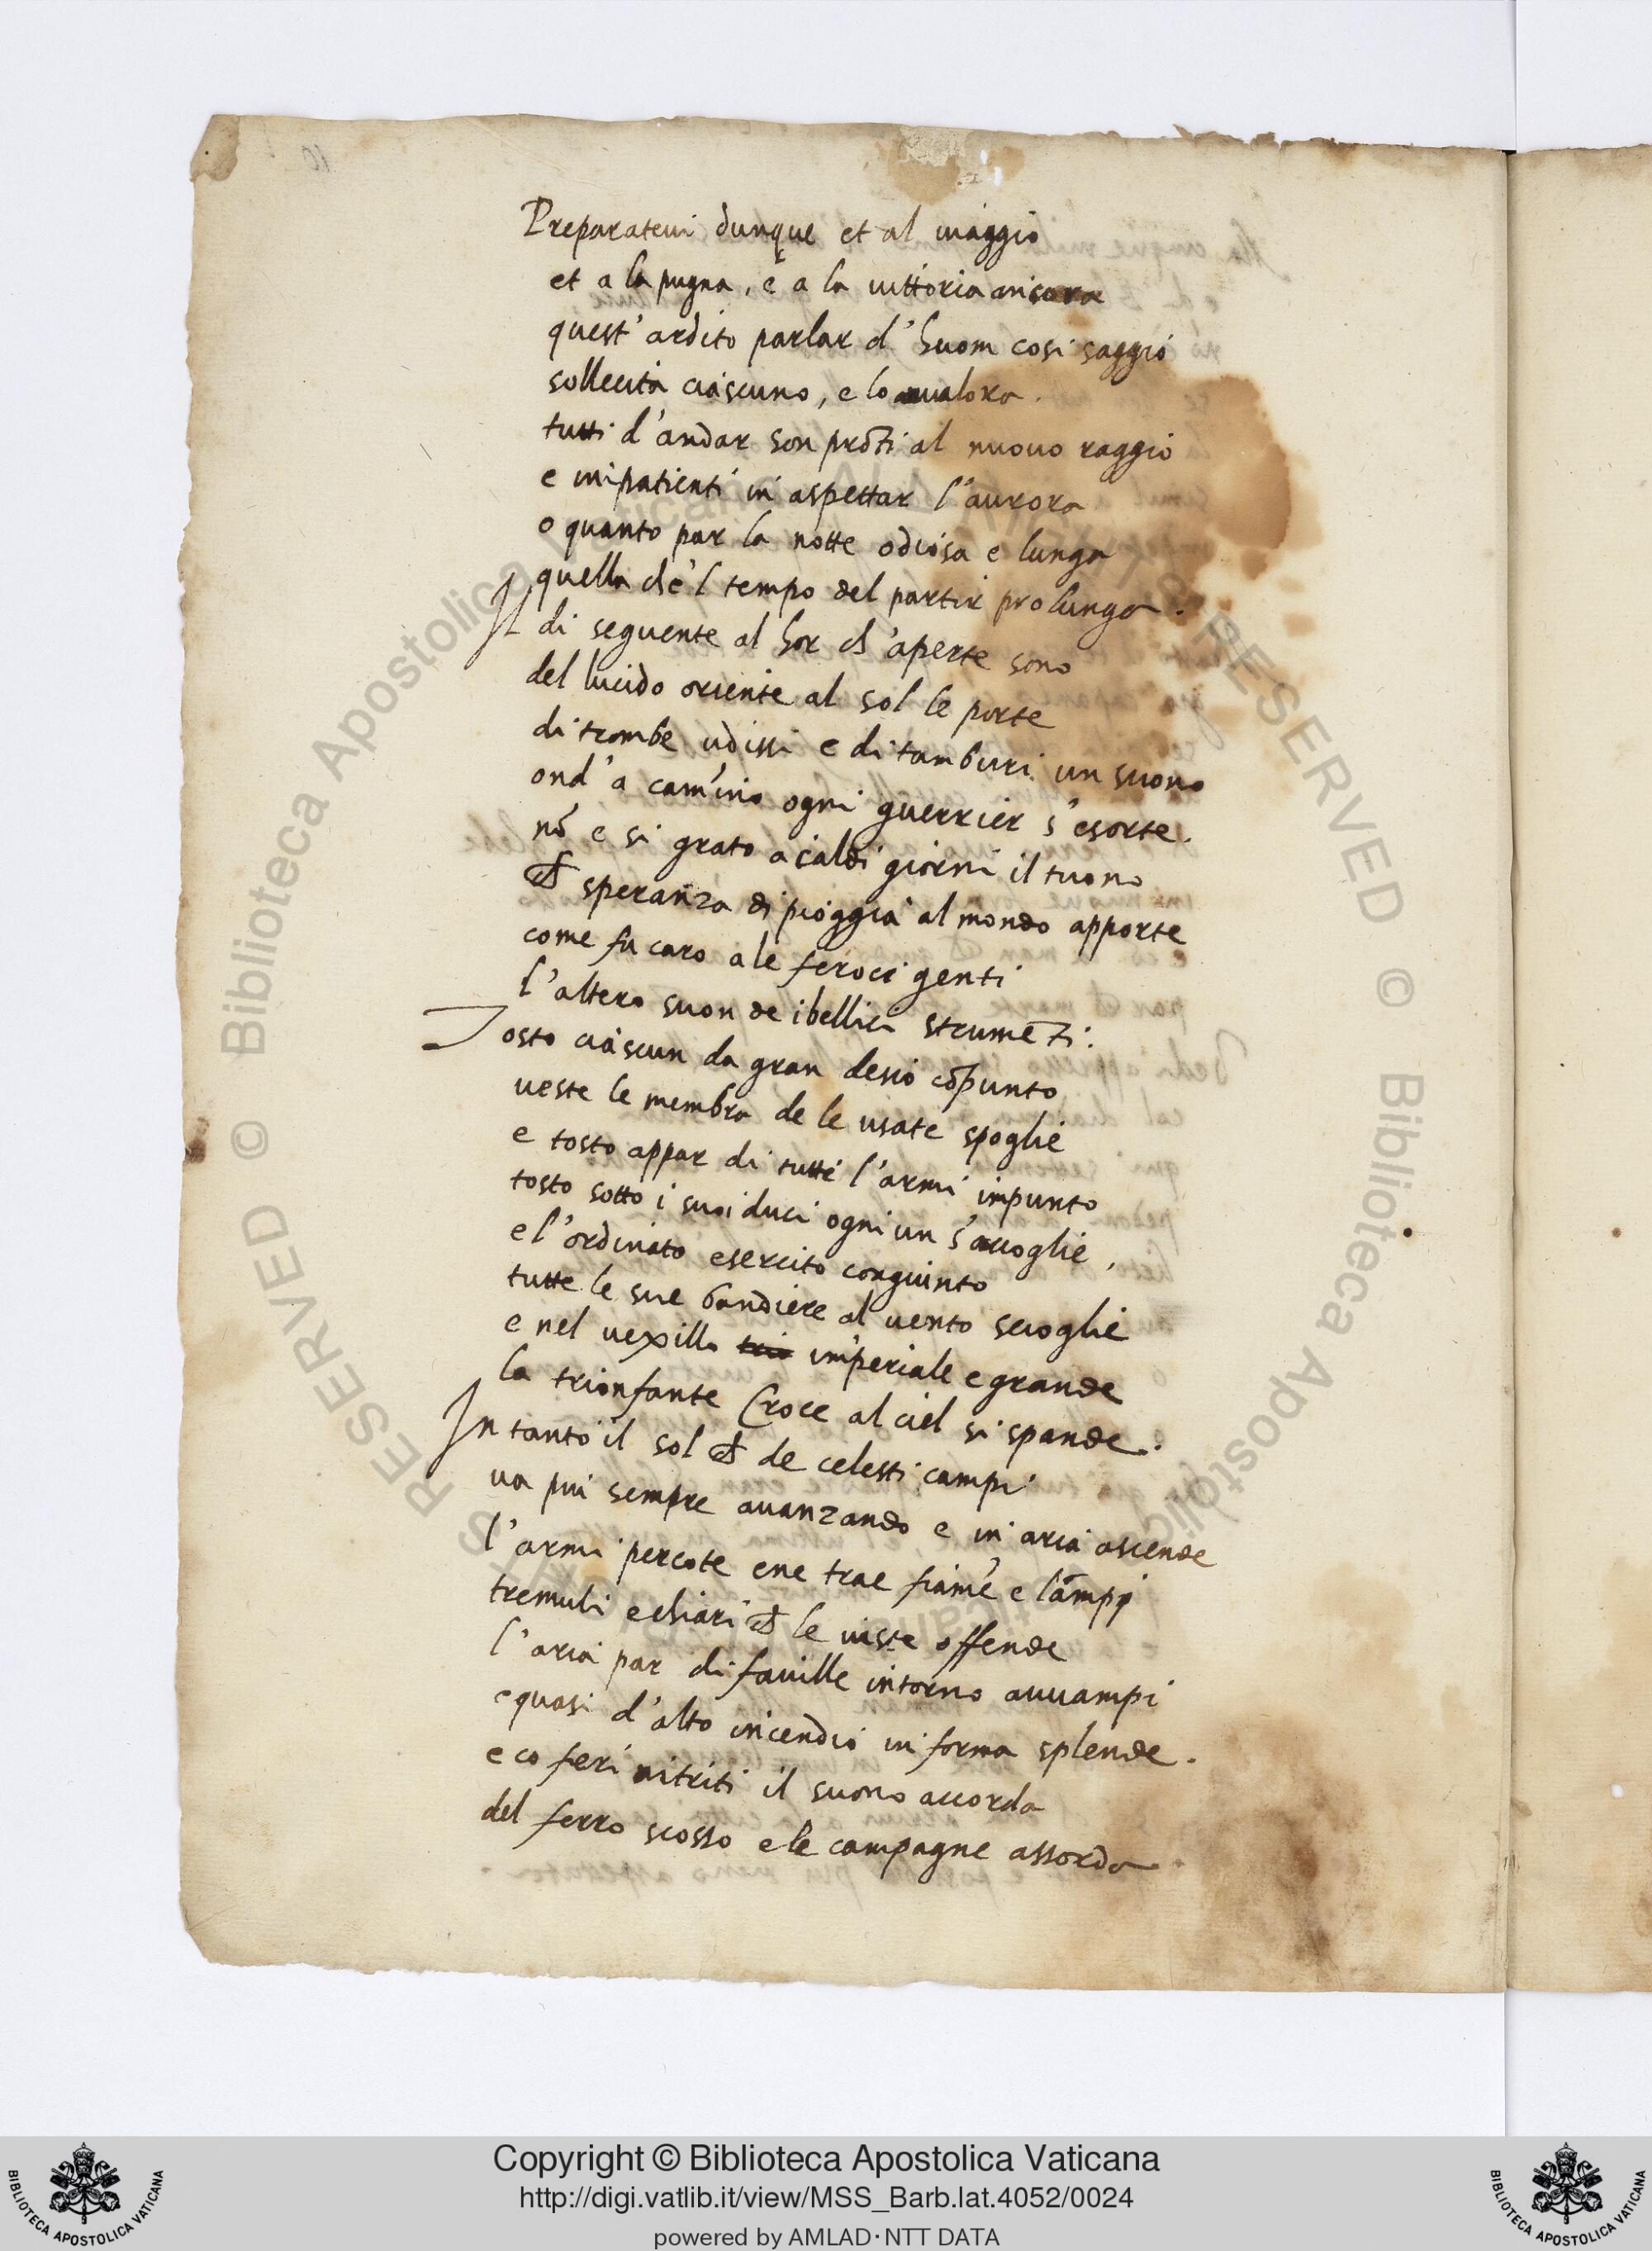 Preparateui dunque et al uiaggio
et a la pugna, e a la uittoria ancora
quest' ardito parlar d' huom cosi saggio
sollecita ciascuno, e lo aualora.
tutti d'andar son prõti al nuouo raggio
e impatienti in aspettar l'aurora
o quanto par la notte odiosa e lunga
quella ch'e'l tempo del partir prolunga.
Il di seguente al hor ch'aperte sono
del lucido oriente al sol le porte
di trombe udissi e di tamburi un suono
ond'a camino ogni guerrier s'esorte.
nõ e si grato a caldi giorni il tuono
ch speranza di pioggia al mondo apporte
come fu caro a le feroci genti
l'altero suon de i bellici strumēti:
Tosto ciascun da gran desio cõpunto
ueste le membra de le usate spoglie
e tosto appar di tutte l'armi impunto
tosto sotto i suoi duci ogni un s'accoglie,
e l'ordinato esercito congiunto
tutte le sue bandiere al uento scioglie
e nel uexillo imperiale e grande
la trionfante Croce al ciel si spande.
In tanto il sol ch de celesti campi
ua piu sempre auanzando e in aria ascende
l'armi percote e ne trae fiamē e lãmpi
tremuli e chiari ch le uiste offende
l'aria par di fauille intorno auuampi
e quasi d'alto incendio in forma splende.
e co feri nitriti il suono accorda
del ferro scosso e le campagne assorda.
RESERVED © Biblioteca Apostolica Vaticana
Copyright © Biblioteca Apostolica Vaticana
http://digi.vatlib.it/view/MSS_Barb.lat.4052/0024
powered by AMLAD·NTT DATA
BIBLIOTECA APOSTOLICA VATICANA
BIBLIOTECA APOSTOLICA VATICANA